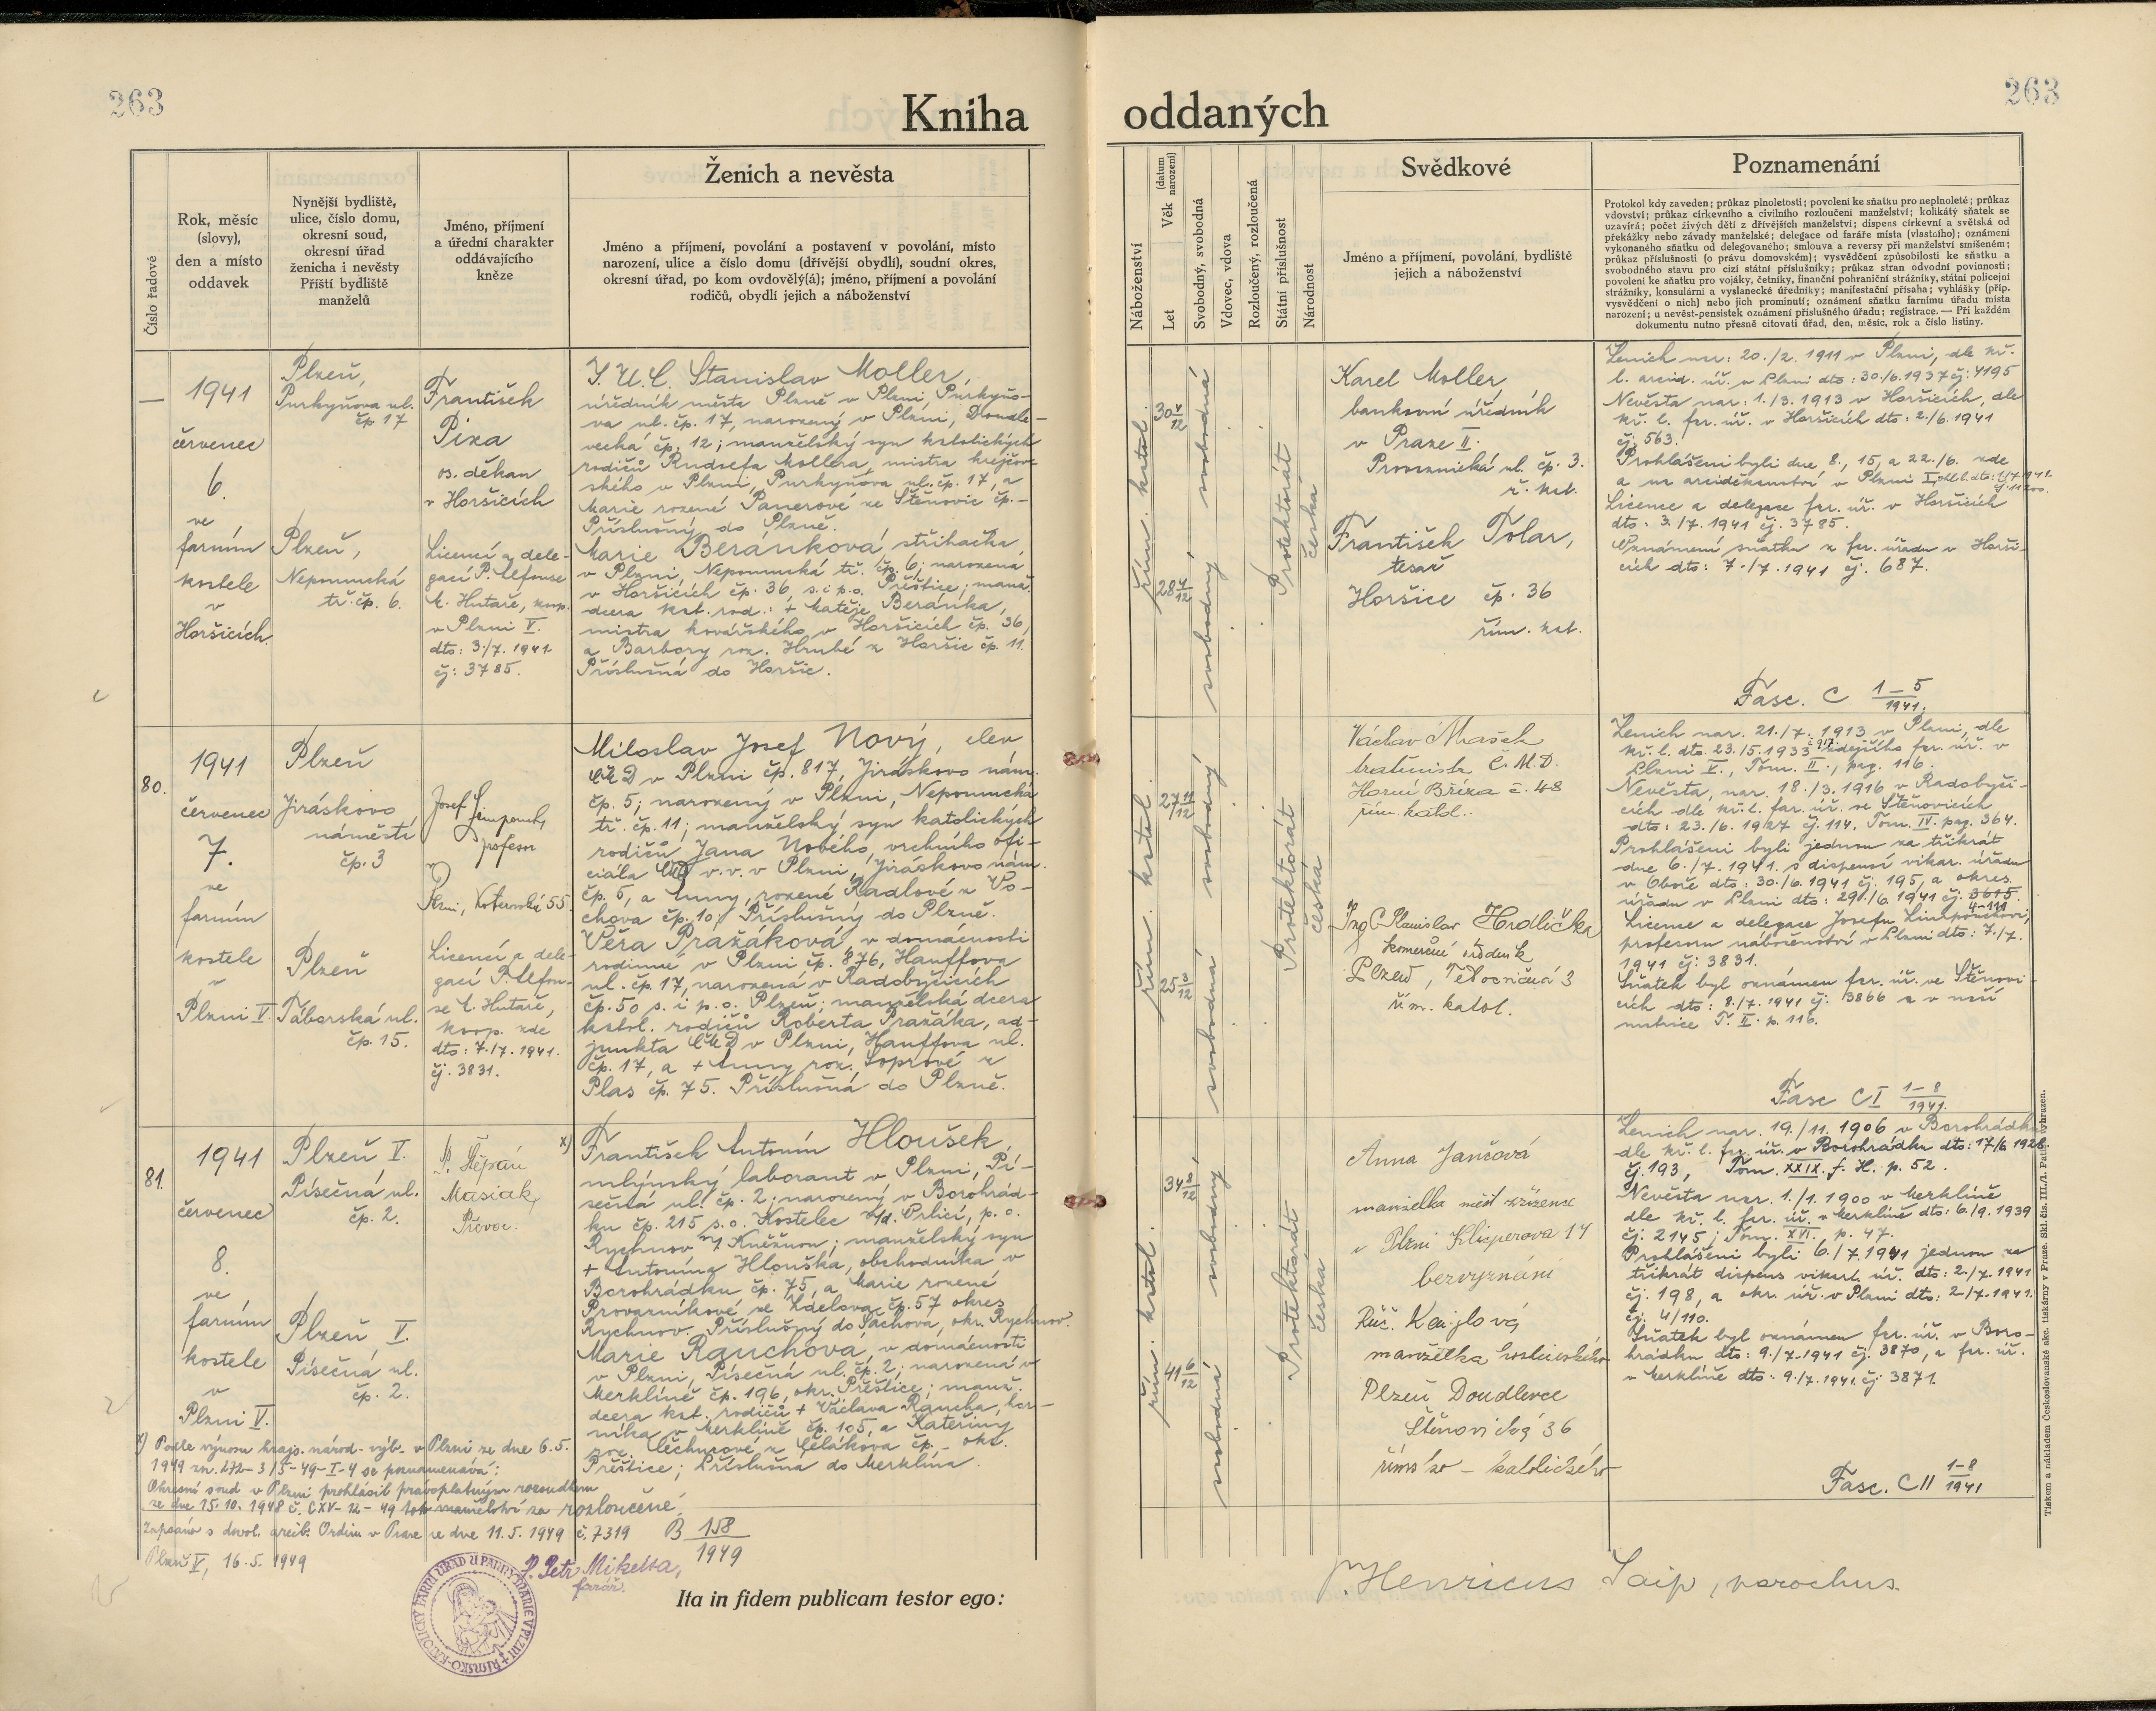 263
Kniha
oddaných
263
Číslo řadové
Rok, měsíc
(slovy),
den a místo
oddavek
Nynější bydliště,
ulice, číslo domu,
okresní soud,
okresní úřad
ženicha i nevěsty
Příští bydliště
manželů
Jméno, příjmení
a úřední charakter
oddávajícího
kněze
Ženich a nevěsta
Jméno a příjmení, povolání a postavení v povolání, místo
narození, ulice a číslo domu (dřívější obydlí), soudní okres,
okresní úřad, po kom ovdovělý(á); jméno, příjmení a povolání
rodičů, obydlí jejich a náboženství
Náboženství
Let
Věk (datum narození)
Svobodný, svobodná
Vdovec, vdova
Rozloučený, rozloučená
Státní příslušnost
Národnost
Svědkové
Jméno a příjmení, povolání, bydliště
jejich a náboženství
Poznamenání
Protokol kdy zaveden; průkaz plnoletosti; povolení ke sňatku pro neplnoleté; průkaz
vdovství; průkaz církevního a civilního rozloučení manželství; kolikátý sňatek se
uzavírá; počet živých dětí z dřívějších manželství; dispens církevní a světská od
překážky nebo závady manželské; delegace od faráře místa (vlastního); oznámení
vykonaného sňatku od delegovaného; smlouva a reversy při manželství smíšeném;
průkaz příslušnosti (o právu domovském); vysvědčení způsobilosti ke sňatku a
svobodného stavu pro cizí státní příslušníky; průkaz stran odvodní povinnosti;
povolení ke sňatku pro vojáky, četníky, finanční pohraniční strážníky, státní policejní
strážníky, konsulární a vyslanecké úředníky; manifestační přísaha; vyhlášky (příp.
vysvědčení o nich) nebo jich prominutí; oznámení sňatku farnímu úřadu místa
narození; u nevěst-pensistek oznámení příslušného úřadu; registrace. — Při každém
dokumentu nutno přesně citovati úřad, den, měsíc, rok a číslo listiny.
—
1941
červenec
6.
ve
farním
kostele
v
Horšicích
Plzeň,
Purkyňova ul.
čp 17
Plzeň,
Nepomucká
tř. čp. 6.
František
Pixa
os. děkan
v Horšicích
Licencí a dele-
gací P. Alfonse
M. Hutaře, koop.
v Plzni V.
dto: 3./7. 1941.
čj: 3785.
J.U.C. Stanislav Moller,
úředník města Plzně v Plzni, Purkyňo-
va ul. čp. 17, narozený v Plzni, Doudle-
vecká čp. 12; manželský syn katolických
rodičů Rudolfa Mollera, mistra krejčov-
ského v Plzni, Purkyňova ul. čp. 17, a
Marie rozené Panerové ze Štěnovic čp. -
Příslušný do Plzně.
Marie Beránková, střihačka
v Plzni, Nepomucká tř. čp. 6; narozená
v Horšicích čp. 36, s. i p. o. Přeštice; manž.
dcera kat. rod.: + Matěje Beránka,
mistra kovářského v Horšicích čp. 36,
a Barbory roz. Hrubé z Horšic čp. 11.
Příslušná do Horšic.
řím. katol.
30 4/12
28 4/12
svobodný svobodná
Protektorát
česká
Karel Moller,
bankovní úředník
v Praze II.
Provaznická ul. čp. 3.
ř. kat.
František Tolar,
tesař
Horšice čp. 36
řím. kat.
Ženich nar: 20./2. 1911 v Plzni, dle kř.
l. arcid. úř. v Plzni dto: 30./6. 1937 čj: 4195
Nevěsta nar: 1./3. 1913 v Horšicích, dle
kř. l. far. úř. v Horšicích dto: 2./6. 1941
čj: 563.
Prohlášeni byli dne 8., 15, a 22./6. zde
a na arciděkanství v Plzni I,
Licence a delegace far. úř. v Horšicích
dto: 3./7. 1941 čj. 3785.
Oznámení sňatku z far. úřadu v Horši-
cích dto: 7./7. 1941 čj. 687.
Fasc. C 1-5/1941.
80.
1941
červenec
7.
ve
farním
kostele
v
Plzni V.
Plzeň
Jiráskovo
náměstí
čp. 3
Plzeň
Táborská ul.
čp. 15.
Josef
profesor
v
Plzni, Koterovská 55.
Licencí a dele-
gací P. Alfon-
se M. Hutaře,
koop. zde
dto: 7./7. 1941.
čj. 3831.
Miloslav Josef Nový, elev
ČMD v Plzni čp. 817, Jiráskovo nám.
čp. 5; narozený v Plzni, Nepomucká
tř. čp. 11; manželský syn katolických
rodičů Jana Nového, vrchního ofi-
ciála ČMD v. v. v Plzni, Jiráskovo nám.
čp. 5, a Anny, rozené Rádlové z Vo-
chova čp. 10; Příslušný do Plzně.
Věra Pražáková, v domácnosti
rodinné v Plzni čp. 876, Hauffova
ul. čp. 17, narozená v Radobyčicích
čp. 50 s. i p. o. Plzeň; manželská dcera
katol. rodičů Roberta Pražáka, ad-
junkta ČMD v Plzni, Hauffova ul.
čp. 17, a + Anny roz. Soprové z
Plas čp. 75. Příslušná do Plzně.
řím. katol.
27 11/12
25 3/12
svobodný svobodná
Protektorát
česká
Václav Mašek
Č.M.D.
Horní Bříza č. 48
řím. katol.
Ing C Stanislav Hrdlička
komerční úředník
Plzeň, 3
řím. katol.
Ženich nar. 21./7. 1913 v Plzni, dle
kř. l. dto. 23./5. 1933 zdejšího far. úř. v
Plzni V., Tom. II., pag. 116.
Nevěsta, nar. 18./3. 1916 v Radobyči-
cích dle kř. l. far. úř. ve Štěnovicích
dto: 23./6. 1927 čj. 114. Tom. IV. pag. 364.
Prohlášeni byli jednou za třikrát
dne 6./7. 1941. s dispensí vikar. úřadu
v Oboře dto: 30./6. 1941 čj. 195, a okres.
úřadu v Plzni dto: 29./6. 1941 čj. 3615.
4-111
Licence a delegace Josefu Limpouchovi,
profesoru náboženství v Plzni dto: 7./7.
1941 čj: 3831.
Sňatek byl oznámen far. úř. ve Štěnovi-
cích dto: 8./7. 1941 čj: 3866 a v naší
matrice T. II. p. 116.
Fasc CI 1-8/1941.
81.
1941
červenec
8.
ve
farním
kostele
v
Plzni V.
Plzeň V.
Písečná ul.
čp. 2.
Plzeň V.
Písečná ul.
čp. 2.
P. Štěpán
Masiak,
x)
František Antonín Hloušek,
mlýnský laborant v Plzni, Pí-
sečná ul. čp. 2; narozený v Borohrád-
ku čp. 215 s. o. Kostelec n/d. Orlicí, p. o.
Rychnov n/ Kněžnou; manželský syn
+ Antonína Hlouška, obchodníka v
Borohrádku čp. 75, a Marie rozené
Provazníkové, ze Zdelova čp. 57 okres
Rychnov. Příslušný do Šachova, okr. Rychnov.
Marie Rauchová, v domácnosti
v Plzni, Písečná ul. čp. 2; narozená v
Merklíně čp. 196, okr. Přeštice; manž.
dcera kat. rodičů + Václava Raucha, hor-
níka v Merklíně čp. 105, a Kateřiny
roz. Čechurové z Čelákova čp. - okr.
Přeštice; Příslušná do Merklína.
řím. katol.
34 8/12
41 6/12
svobodný svobodná
Protektorát
česká
Anna Jančová
manželka měst zřízence
v Plzni Klicperova 14
bez vyznání
Růž. Kajlová
manželka hostinského
Plzeň Doudlevce
Štěnovická 36
římsko - katolického
Ženich nar. 19./11. 1906 v Borohrádku
dle kř. l. far. úř. v Borohrádku dto: 17/6 1926.
čj. 193, Tom. XXIX. f. H. p. 52.
Nevěsta nar. 1./1. 1900 v Merklíně
dle kř. l. far. úř. v Merklíně dto: 6./9. 1939
čj: 2145; Tom. XVI. p. 47.
Prohlášeni byli 6./7. 1941 jednou za
třikrát dispens vikar. úř. dto: 2./7. 1941
čj. 198, a okr. úř. v Plzni dto: 2./7. 1941.
čj. 4/110.
Sňatek byl oznámen far. úř. v Boro-
hrádku dto: 9./7. 1941 čj. 3870, a far. úř.
v Merklíně dto: 9./7. 1941. čj 3871.
Fasc. CII 1-8/1941
x) Podle výnosu kraj. národ. výb. v Plzni ze dne 6.5.
1949 zn. 272-3/5-49-I-4 se poznamenává:
Okresní soud v Plzni prohlásil právoplatným rozsudkem
ze dne 15.10. 1948 č. CXV-12-49 toto manželství za rozloučené.
Zapsáno s dovol. arcib. Ordin v Praze ze dne 11.5. 1949 č. 7319 B 158/1949
Plzeň V, 16.5. 1949
P. Petr Miketta,
farář.
ŘÍMSKO-KATOLICKÝ FARNÍ ÚŘAD U PANNY MARIE V PLZNI
Ita in fidem publicam testor ego:
P. Henricus Saip, parochus.
Tiskem a nákladem Československé akc. tiskárny v Praze. Skl. čís. III./1. Patisk vyhrazen.